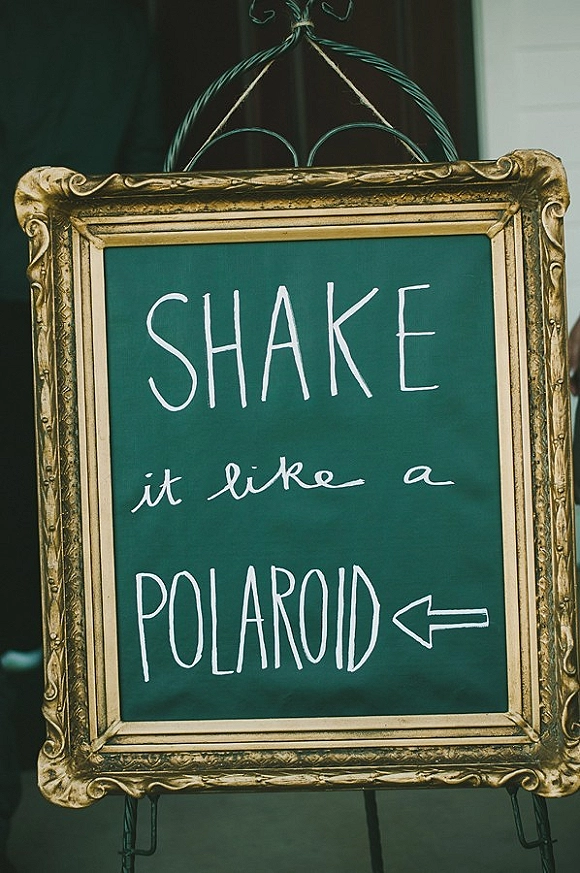 SHAKE
it like a
POLAROID